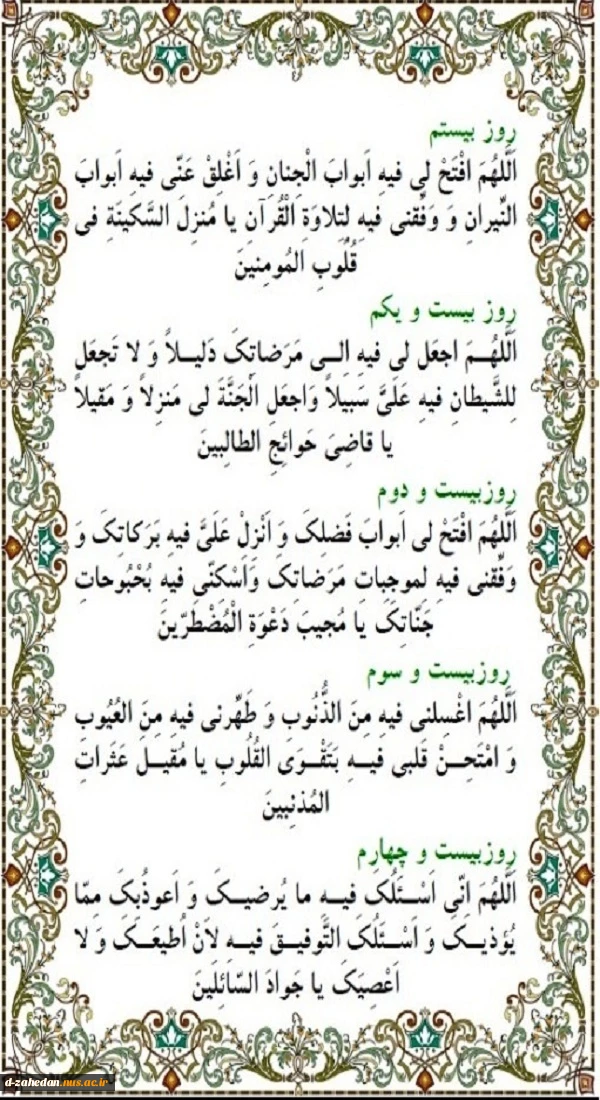 روز بیستم
اَللّهُمَ افْتَحْ لی فیهِ اَبوابَ الْجِنانِ وَ اَغْلِقْ عَنّی فیهِ اَبوابَ
النّیرانِ وَ وَفِّقنی فیهِ لِتِلاوَةِ الْقُرآنِ یا مُنزِلَ السَّکینَةِ فی
قُلُوبِ المُومِنینَ
روز بیست و یکم
اَللّهُمَ اجعَل لی فیهِ الی مَرَضاتِکَ دَلیلاً وَ لا تَجعَل
لِلشَّیطانِ فیهِ عَلَیَّ سَبیلاً وَاجعَلِ الْجَنَّةَ لی مَنزِلاً وَ مَقیلاً
یا قاضِیَ حَوائِجِ الطالِبینَ
روزبیست و دوم
اَللّهُمَ افْتَحْ لی اَبوابَ فَضلِکَ وَ اَنْزِلْ عَلَیَّ فیهِ بَرَکاتِکَ وَ
وَفِّقنی فیهِ لموجِباتِ مَرَضاتِک وَاَسْکنّی فیهِ بُحْبُوحاتِ
جَنّاتِکَ یا مُجیبَ دَعْوَةِ الْمُضْطَرّینَ
روزبیست و سوم
اَللّهُمَ اغْسِلنی فیهِ مِنَ الذُّنُوبِ وَ طَهِّرنی فیهِ مِنَ العُیُوبِ
وَ امْتَحِنْ قَلبی فیهِ بَتَقْوَی القُلُوبِ یا مُقیلَ عَثَراتِ
المُذنِبینَ
روزبیست و چهارم
اَللّهُمَ انّی اَسْئَلُکَ فیهِ ما یُرضیکَ وَ اَعوذُبِکَ مِمّا
یُؤذیکَ وَ اَسْئَلُکَ التَّوفیقَ فیهِ لاَنْ اُطیعَکَ وَ لا
اَعْصِیَکَ یا جَوادَ السّائِلَینَ
d-zahedan.nus.ac.ir